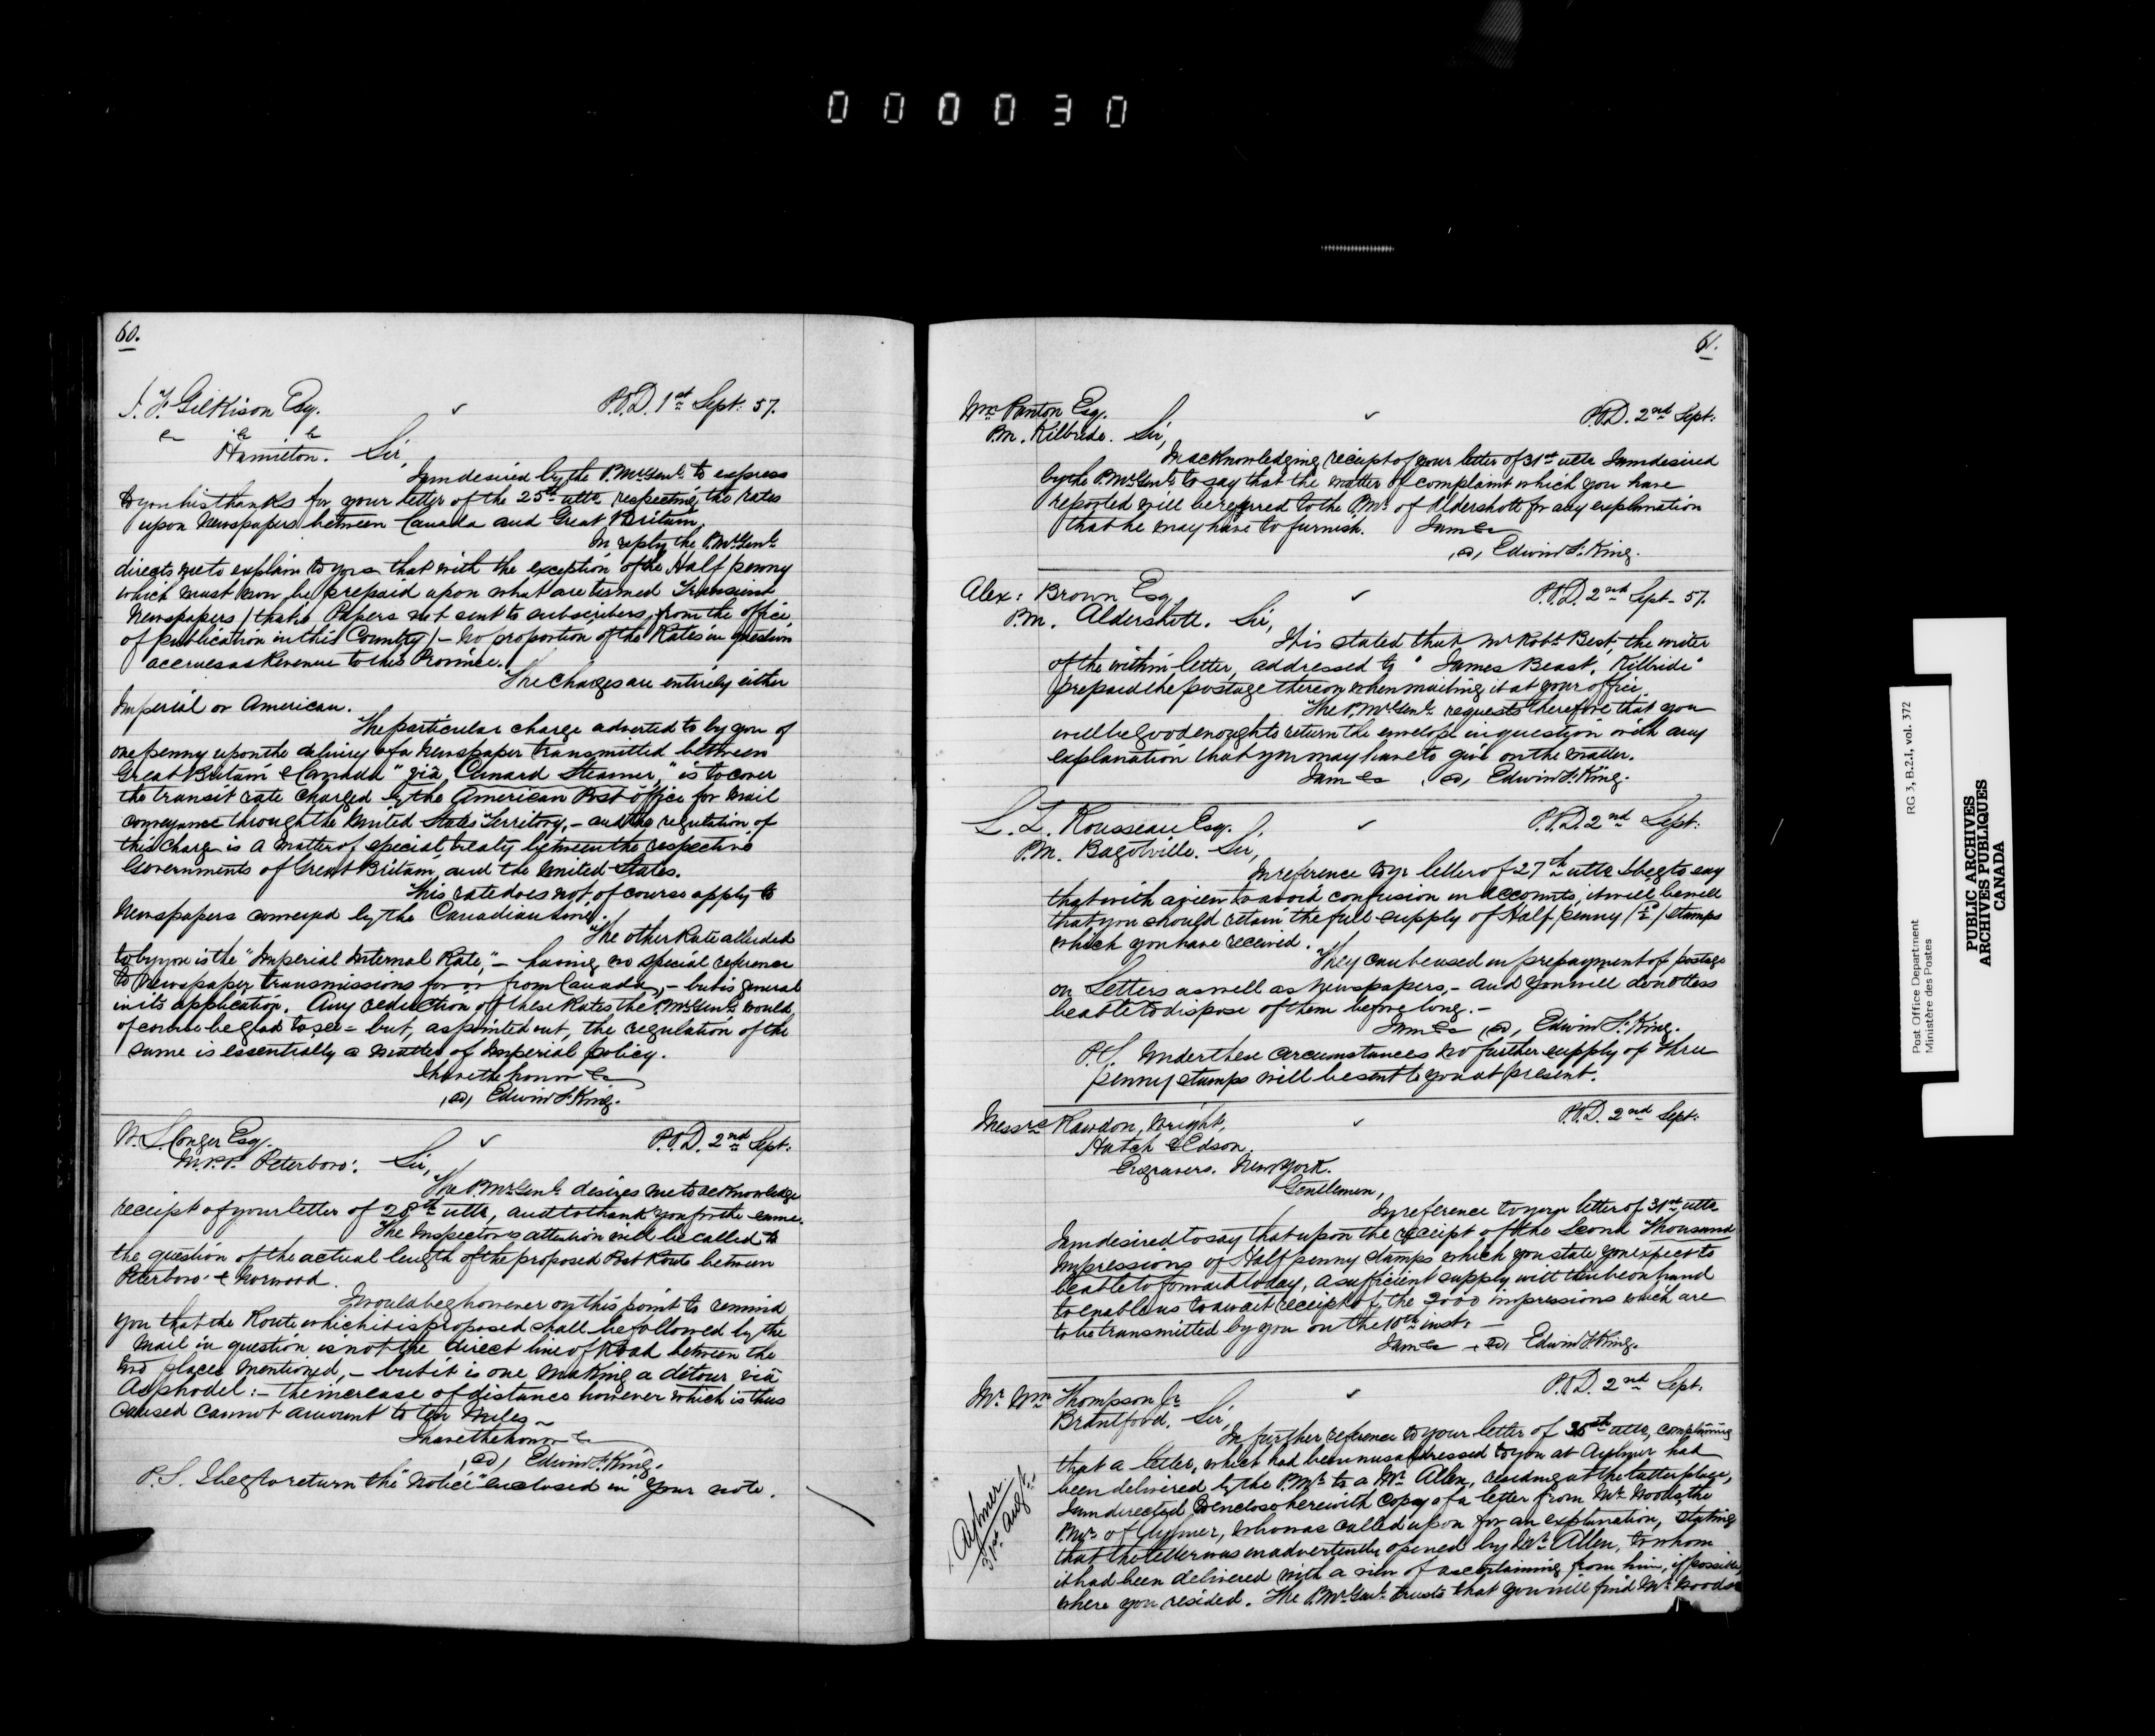 000030
60.
J. F. Gilkison Esq.
P.O.D. 1st Sept: 57.
&c &c &c
Hamilton. Sir,
I am desired by the P.Mr. Genl. to express
to you his thanks for your letter of the 25th ulto. respecting the rates
upon Newspapers between Canada and Great Britain.
In reply the P.Mr. Genl.
directs me to explain to you that with the exception of the Half penny
which must now be prepaid upon what are termed Transient
Newspapers / that is Papers not sent to subscribers, from the office
of publication in this Country / – no proportion of the Rates in question
accrues as Revenue to this Province.
The Charges are entirely either
Imperial or American.
The particular charge adverted to by you of
one penny upon the delivery of a Newspaper transmitted between
Great Britain & Canada "via Cunard Steamer," is to cover
the transit rate charged by the American Post office for mail
conveyance through the United States Territory, – and the regulation of
this charge is a matter of special treaty between the respective
Governments of Great Britain, and the United States.
This rate does not, of course apply to
Newspapers conveyed by the Canadian Line.
The other Rate alluded
to by you is the "Imperial Internal Rate," – having no special reference
to Newspaper transmissions for or from Canada, – but is general
in its application. Any reduction of these Rates the P.Mr. Genl. would
of course be glad to see – but, as pointed out, the regulation of the
same is essentially a matter of Imperial policy.
I have the honor &c
(sd) Edwin F. King.
W. S. Conger Esq.
P.O.D. 2nd Sept:
M.P.P. Peterboro'. Sir,
The P.Mr. Genl. desires me to acknowledge
receipt of your letter of 28th ulto, and to thank you for the same.
The Inspector's attention will be called to
the question of the actual length of the proposed Post Route between
Peterboro' & Norwood.
I would beg however on this point to remind
you that the Route which it is proposed shall be followed by the
mail in question is not the direct line of Road between the
two places mentioned, – but it is one making a détour viâ
Asphodel: – the increase of distance however which is thus
caused cannot amount to ten miles –
I have the honor &c
(sd) Edwin F. King.
P.S. I beg to return the "Notice" enclosed in your note.
61.
Wm Panton Esq.
P.O.D. 2nd Sept:
P.M. Kilbride. Sir,
In acknowledging receipt of your letter of 31st ulto I am desired
by the P.Mr. Genl. to say that the matter of complaint which you have
reported will be referred to the P.Mr. of Aldershott for any explanation
that he may have to furnish. I am &c
(sd) Edwin F. King.
Alex: Brown Esq.
P.O.D. 2nd Sept. 57.
P.M. Aldershott. Sir,
It is stated that Mr Robt. Best, the writer
of the within letter, addressed to "James Beast, Kilbride"
prepaid the postage thereon when mailing it at your office.
The P.Mr. Genl. requests therefore that you
will be good enough to return the envelope in question with any
explanation that you may have to give on the matter.
I am &c (sd) Edwin F. King.
L. Z. Rousseau Esq.
P.O.D. 2nd Sept:
P.M. Bagotville. Sir,
In reference to yr letter of 27th ulto I beg to say
that with a view to avoid confusion in Accounts, it will be well
that you should retain the full supply of Half penny / ½d / stamps
which you have received.
They can be used in prepayment of postage
on Letters as well as Newspapers, – and you will doubtless
be able to dispose of them before long. –
I am &c (sd) Edwin F. King.
P.S. Under these circumstances no further supply of Three
penny stamps will be sent to you at present.
Messrs Rawdon, Wright,
P.O.D. 2nd Sept:
Hatch & Edson
Engravers. New York.
Gentlemen,
In reference to your letter of 31st ulto
I am desired to say that upon the receipt of the Second Thousand
Impressions of Half penny stamps which you state you expect to
be able to forward today, a sufficient supply will then be on hand
to enable us to await receipt of the 3000 impressions which are
to be transmitted by you on the 10th inst. –
I am &c – (sd) Edwin F. King.
Mr. Wm. Thompson Jr.
P.O.D. 2nd Sept.
Brantford. Sir,
In further reference to your letter of ulto, complaining
that a letter, which had been misaddressed to you at Aylmer had
been delivered by the P.Mr. to a Mr. Allen, residing at the latter place,
I am directed to enclose herewith copy of a letter from Mr. Woods, the
P.Mr. of Aylmer, who was called upon for an explanation, stating
that the letter was inadvertently opened by Mr. Allen, to whom
it had been delivered with a view of ascertaining from him, if possible,
where you resided. The P.Mr. Genl. trusts that you will find Mr. Woods
Aylmer
31st Augt.
Post Office Department
Ministère des Postes
RG 3, B.2.I, vol. 372
PUBLIC ARCHIVES
ARCHIVES PUBLIQUES
CANADA